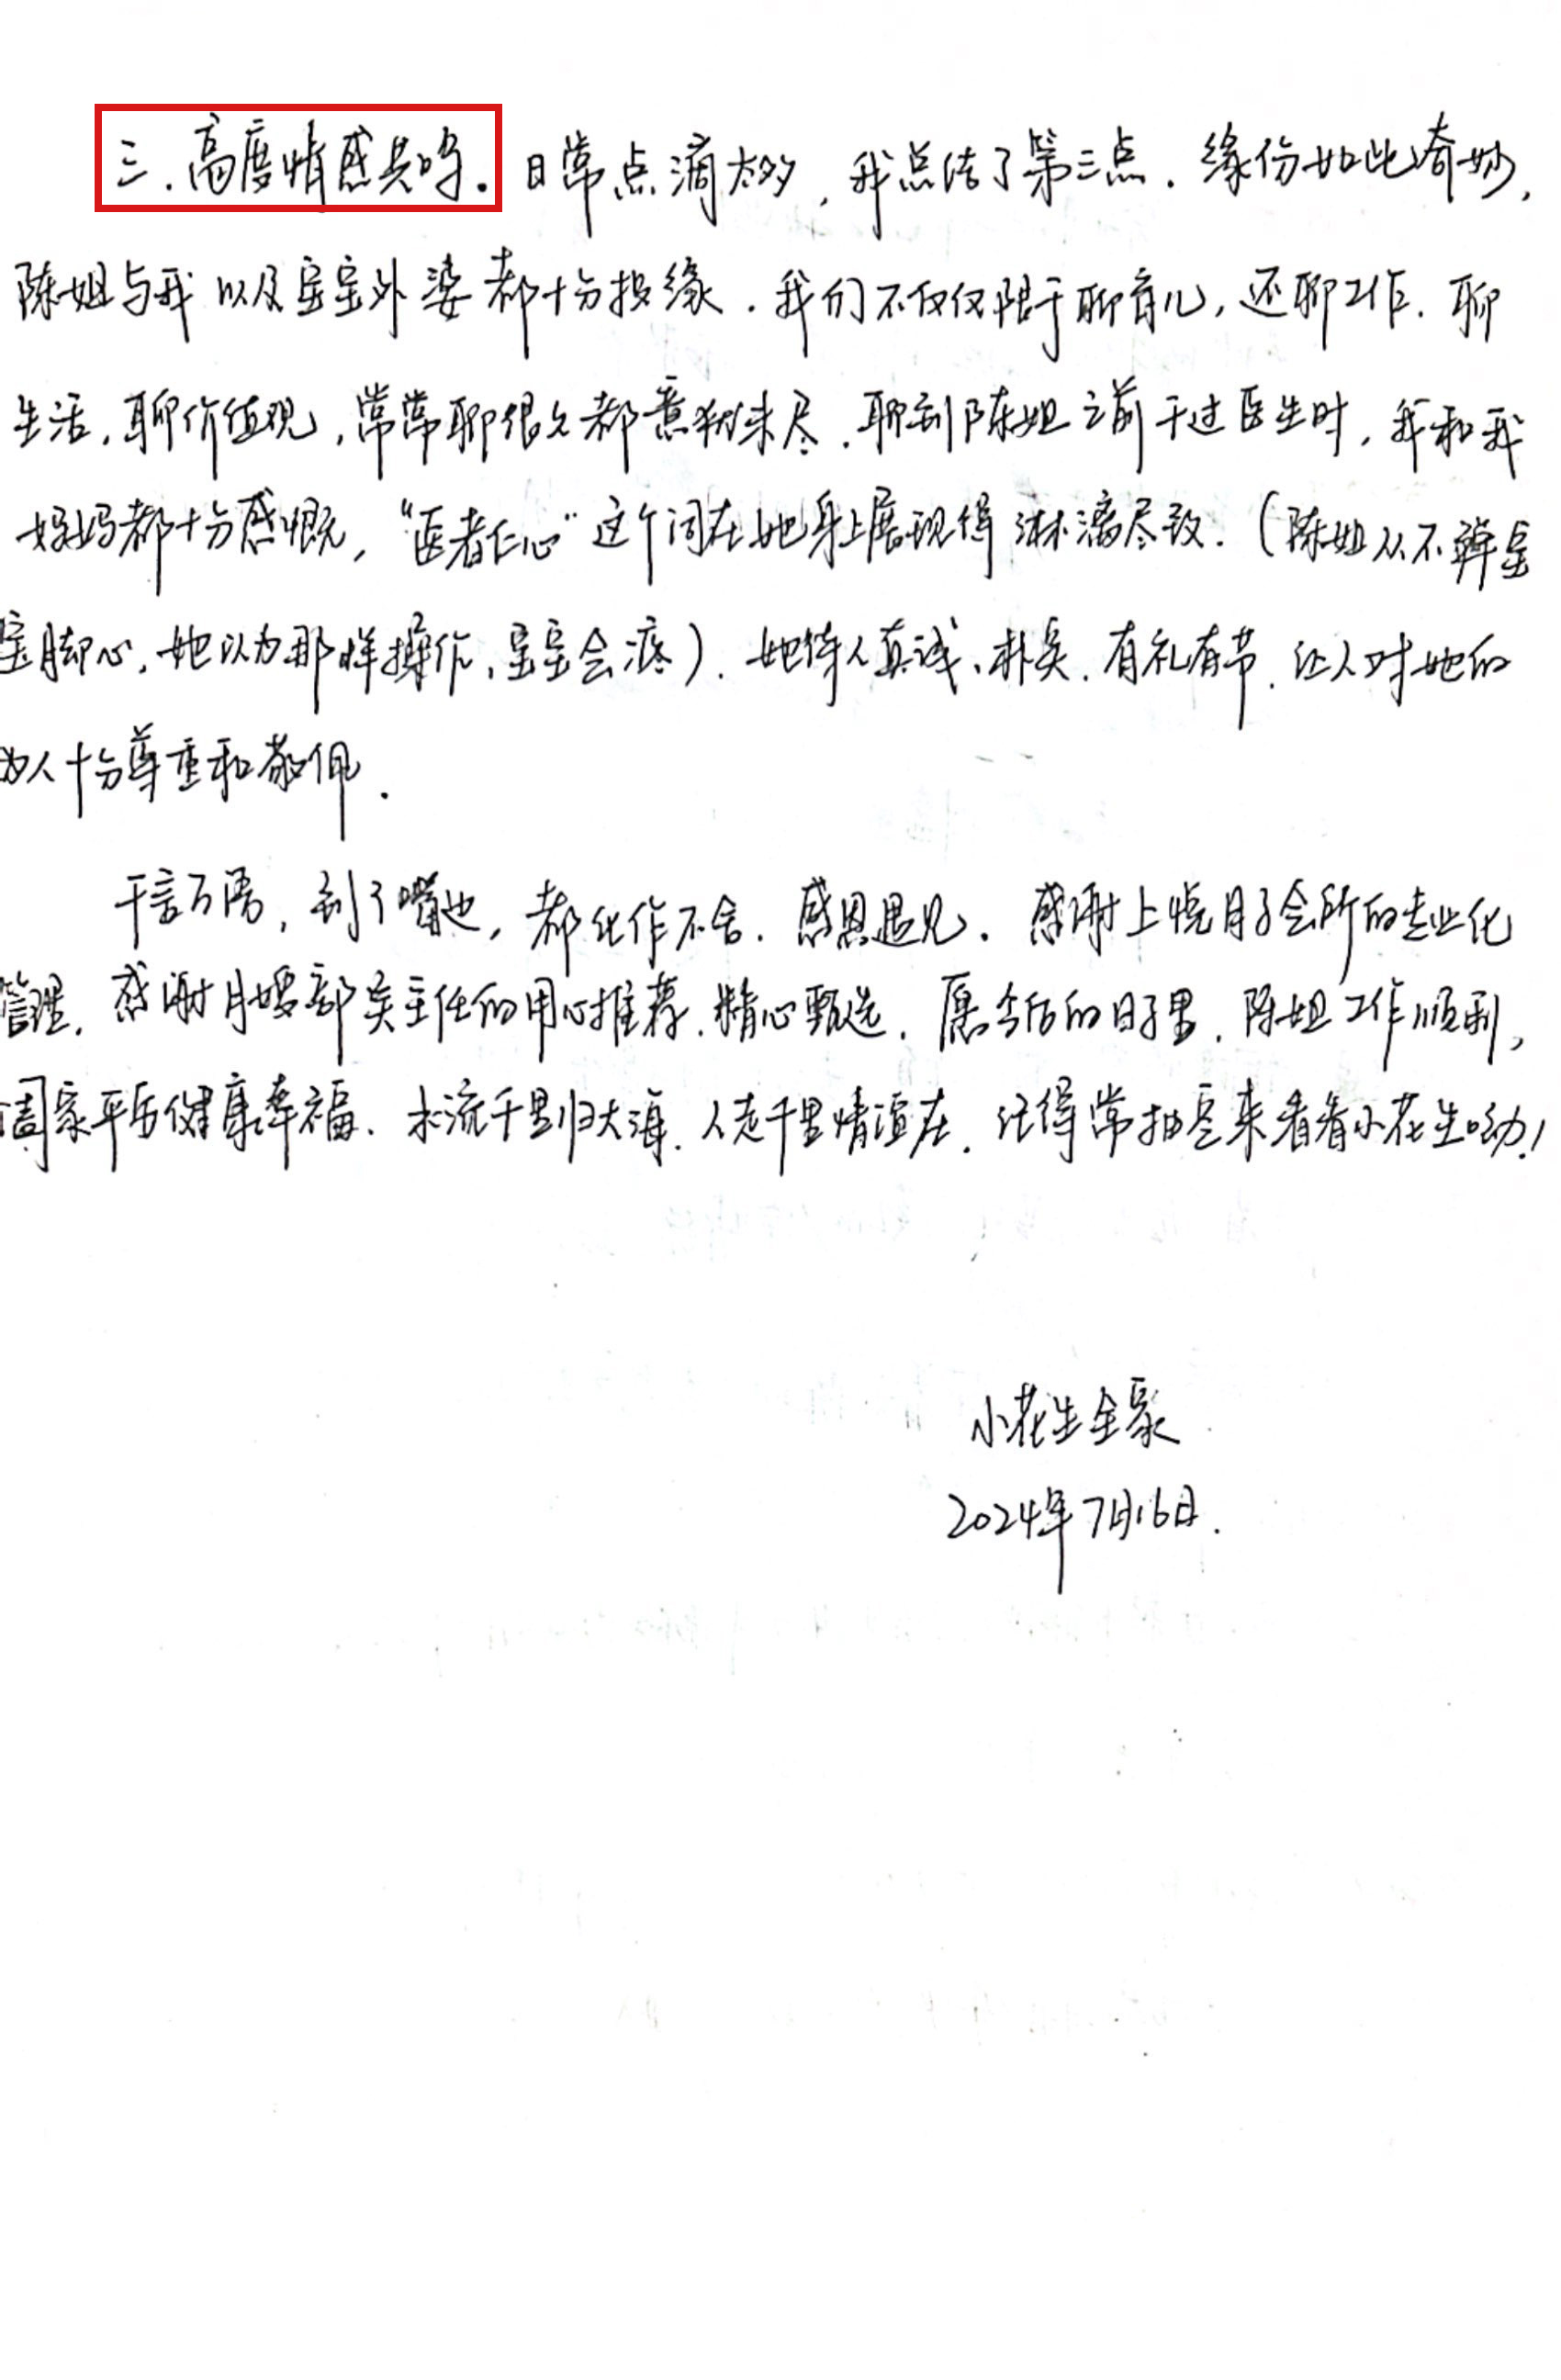 三.高度情感共鸣.日常点滴太多,我总结了第三点.缘份如此奇妙,
陈姐与我以及宝宝外婆都十分投缘.我们不仅仅限于聊育儿,还聊工作.聊
生活,聊价值观,常常聊很久都意犹未尽.聊到陈姐之前干过医生时,我和我
妈妈都十分感慨,“医者仁心”这个词在她身上展现得淋漓尽致.(陈姐从不弹宝
宝脚心,她以为那样操作,宝宝会疼).她待人真诚、朴实.有礼有节.让人对她的
为人十分尊重和敬佩.
千言万语,到了嘴边,都化作不舍.感恩遇见.感谢上悦月子会所的专业化
管理.感谢月嫂部吴主任的用心推荐.精心甄选.愿今后的日子里.陈姐工作顺利,
阖家平安健康幸福.水流千里归大海.人走千里情谊在.记得常抽空来看看小花生呦!
小花生全家
2024年7月16日.